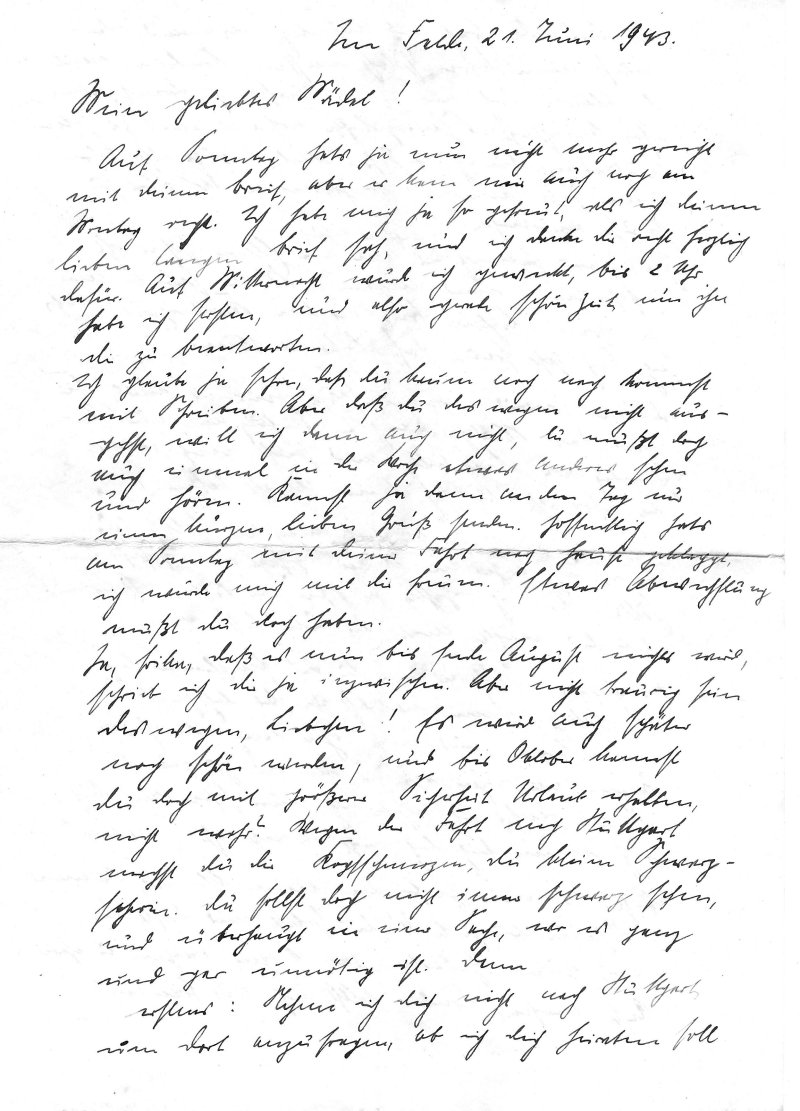 Im Felde, 21. Juni 1943.
Mein geliebtes Mädel!
Auf Sonntag hats ja nun nicht mehr gereicht
mit deinem Brief, aber er kam mir auch noch am
Montag recht. Ich habe mich ja so gefreut, als ich deinen
lieben langen Brief sah, und ich danke dir recht herzlich
dafür. Auf Mitternacht wurde ich geweckt, bis 2 Uhr
habe ich , und also gerade schön Zeit um ihn
dir zu beantworten.
Ich glaube ja schon, daß du kaum noch nach kommst
mit Schreiben. Aber daß du deswegen nicht aus-
gehst, will ich dann auch nicht, du mußt doch
auch einmal in der Woche etwas anderes sehen
und hören. Kannst ja dann an dem Tag nur
einen kurzen, lieben Gruß senden. Hoffentlich hats
am Sonntag mit deiner Fahrt nach Hause geklappt,
ich würde mich mit dir freuen. Etwas Abwechslung
mußt du doch haben.
Ja, , daß es nun bis Ende August nichts wird,
schrieb ich dir ja inzwischen. Aber nicht traurig sein
deswegen, Liebchen! Es wird auch später
noch schön werden, und bis Oktober kannst
du doch mit größerer Sicherheit Urlaub erhalten,
nicht wahr? Wegen der Fahrt nach Stuttgart
machst du dir Kopfschmerzen, du kleine Schwarz-
seherin. Du sollst doch nicht immer schwarz sehen,
und überhaupt in einer Sache, wo es ganz
und gar unnötig ist. Denn
erstens: Nehme ich dich nicht nach Stuttgart
um dort anzufragen, ob ich dich heiraten soll